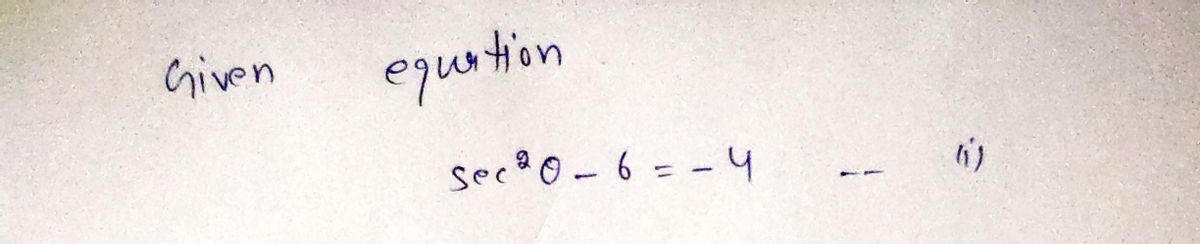 Given equation
sec²θ - 6 = -4 -- (i)